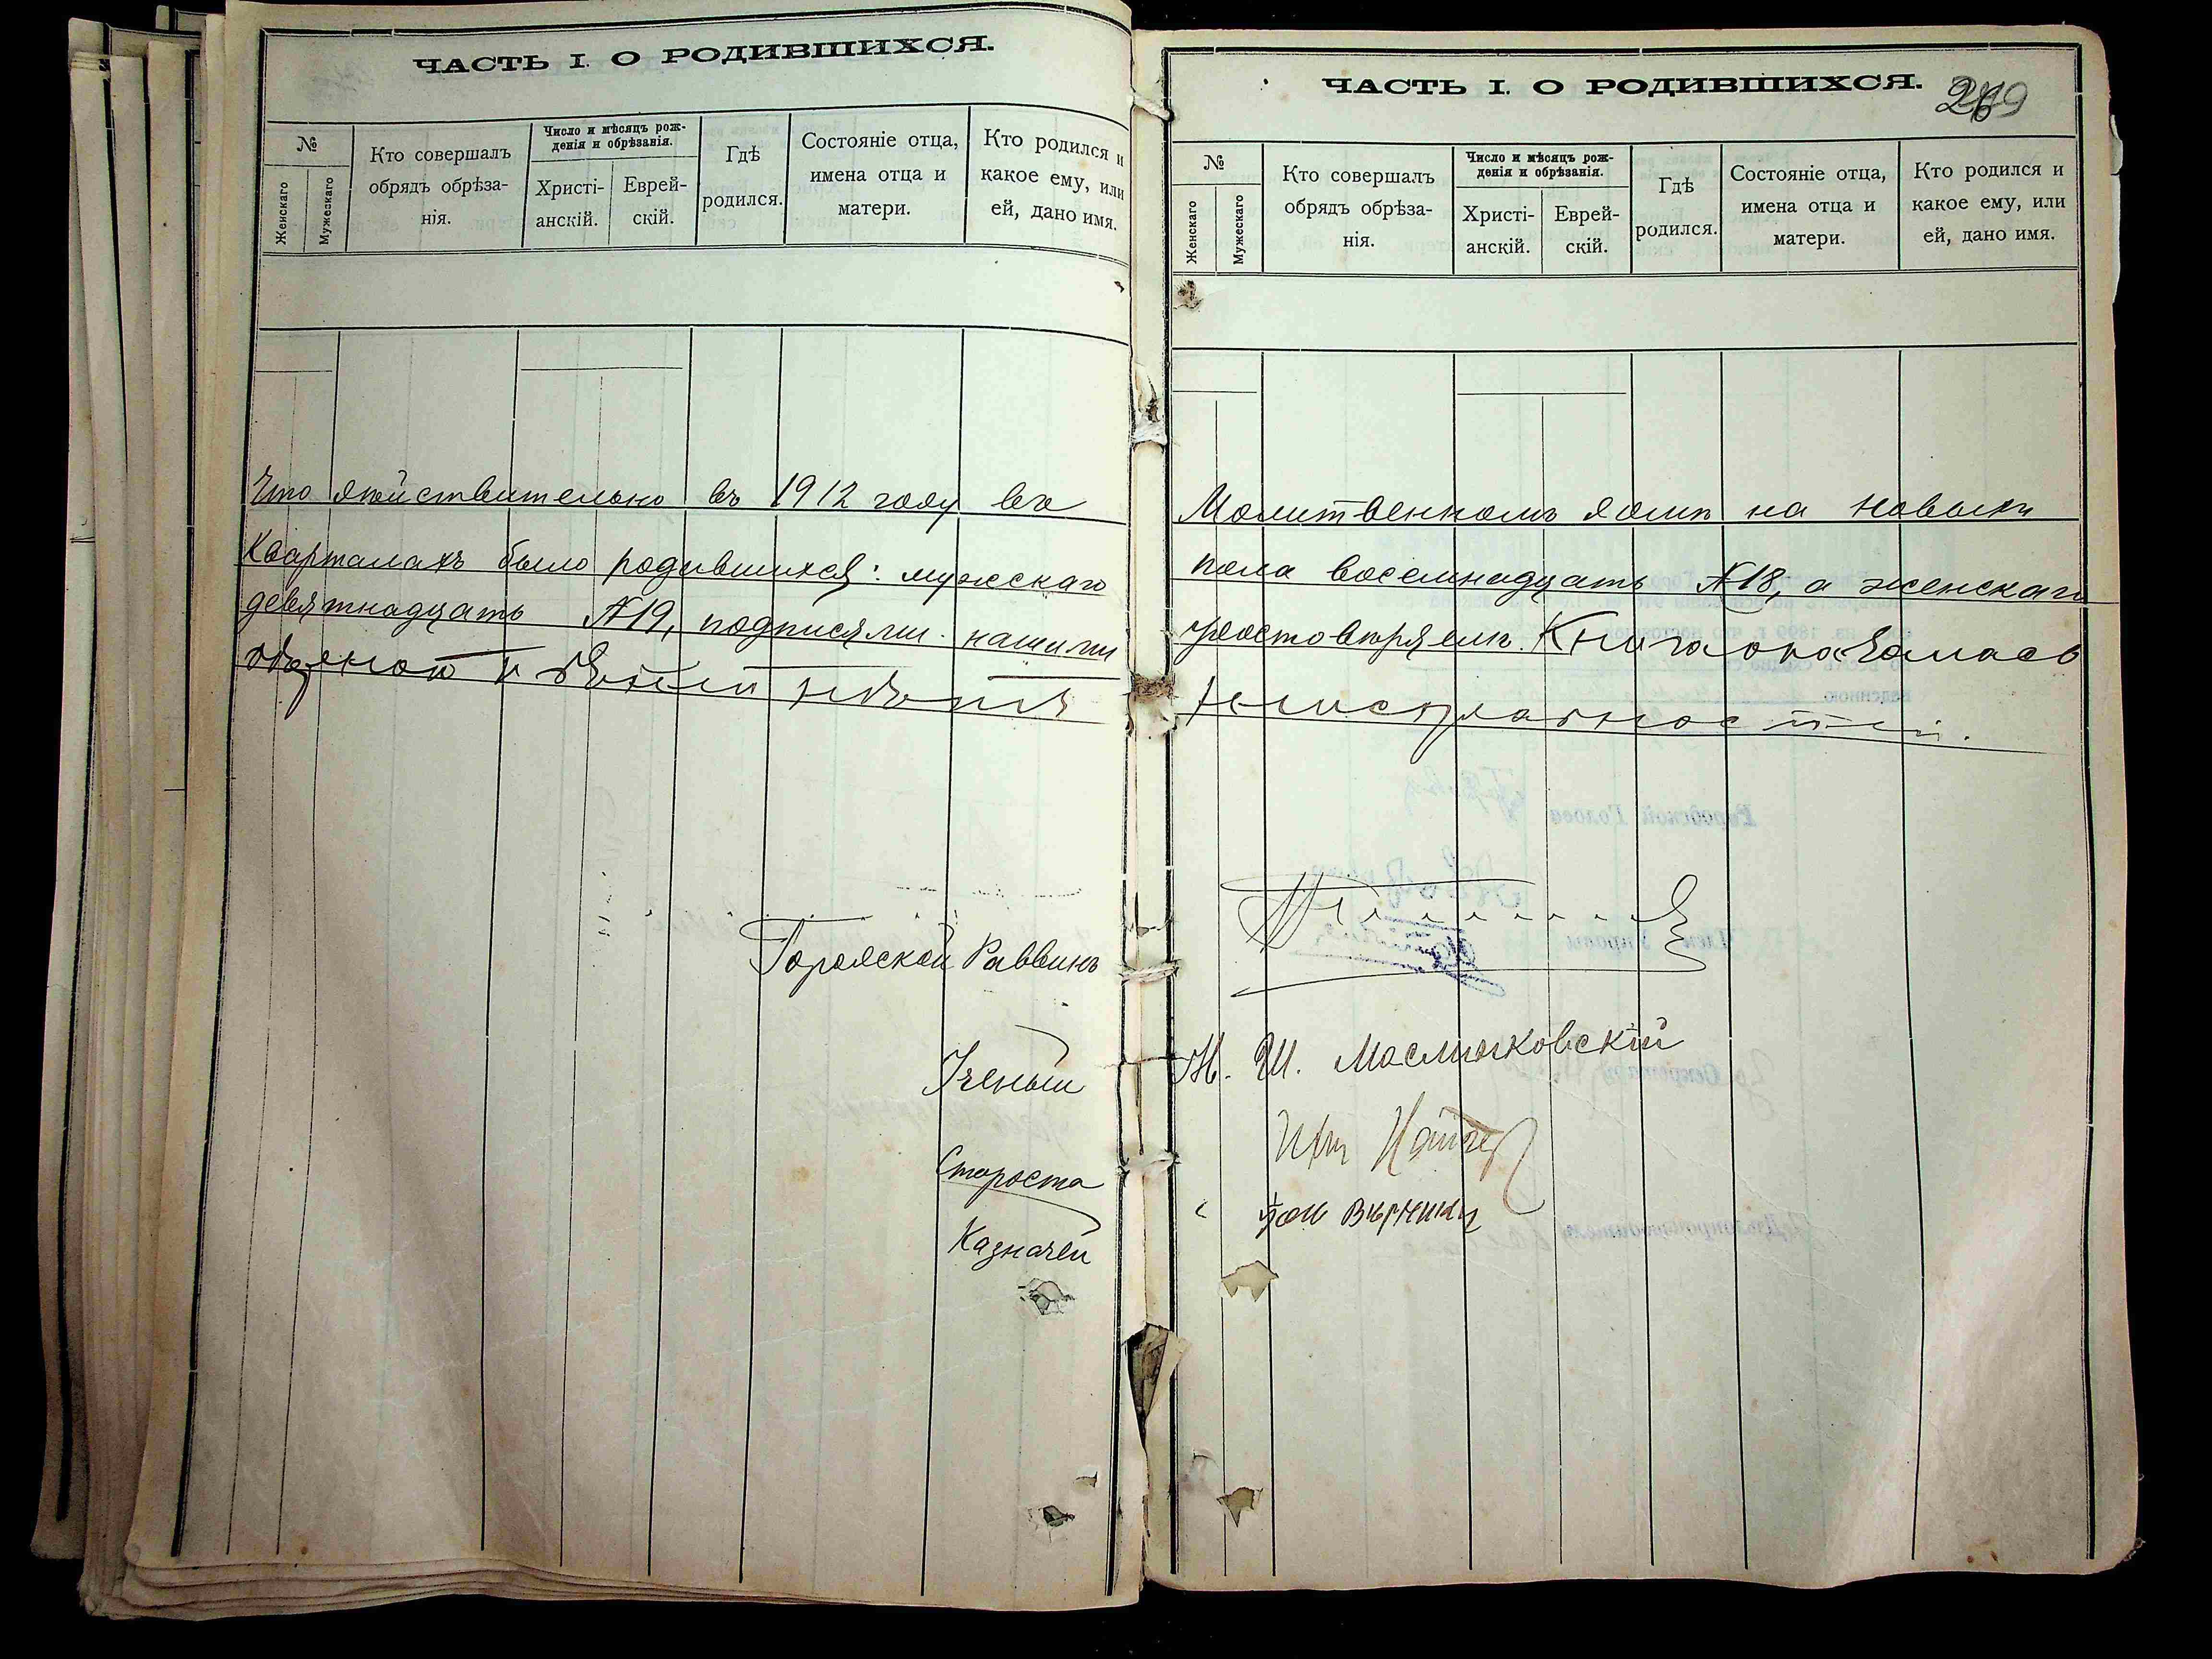 ЧАСТЬ I. О РОДИВШИХСЯ.
№
Женскаго
Мужескаго
Кто совершалъ
обрядъ обрѣза-
нія.
Число и мѣсяцъ рож-
денія и обрѣзанія.
Христі-
анскій.
Еврей-
скій.
Гдѣ
родился.
Состояніе отца,
имена отца и
матери.
Кто родился и
какое ему, или
ей, дано имя.
Что дѣйствительно въ 1912 году въ
Кварталахъ было родившихся: мужскаго
девятнадцать №19, подписями нашими
Городской Раввинъ
Ученый
Староста
Казначей
ЧАСТЬ I. О РОДИВШИХСЯ.
№
Женскаго
Мужескаго
Кто совершалъ
обрядъ обрѣза-
нія.
Число и мѣсяцъ рож-
денія и обрѣзанія.
Христі-
анскій.
Еврей-
скій.
Гдѣ
родился.
Состояніе отца,
имена отца и
матери.
Кто родился и
какое ему, или
ей, дано имя.
Молитвенномъ домѣ на Новыхъ
пола восемнадцать №18, а женскаго
удостовѣряемъ. Книга оказалась
Ш.